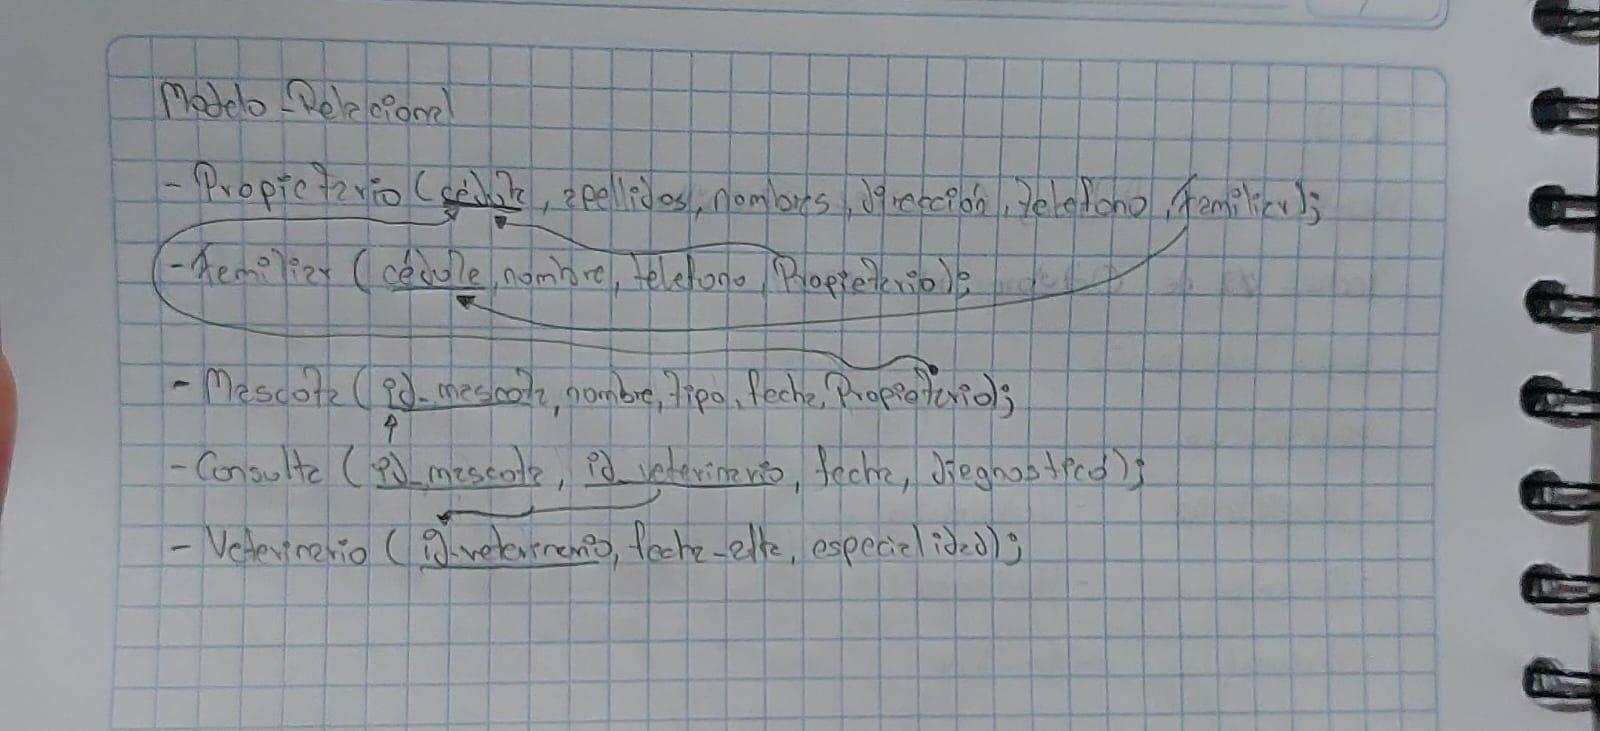 Modelo Relacional
- Propietario (cédula, apellidos, nombres, dirección, telefono, familiar);
- Familiar (cédula, nombre, telefono, Propietario);
- Mascota (id_mascota, nombre, tipo, fecha, Propietario);
- Consulta (id_mascota, id_veterinario, fecha, diagnostico);
- Veterinario (id_veterinario, fecha_alta, especialidad);